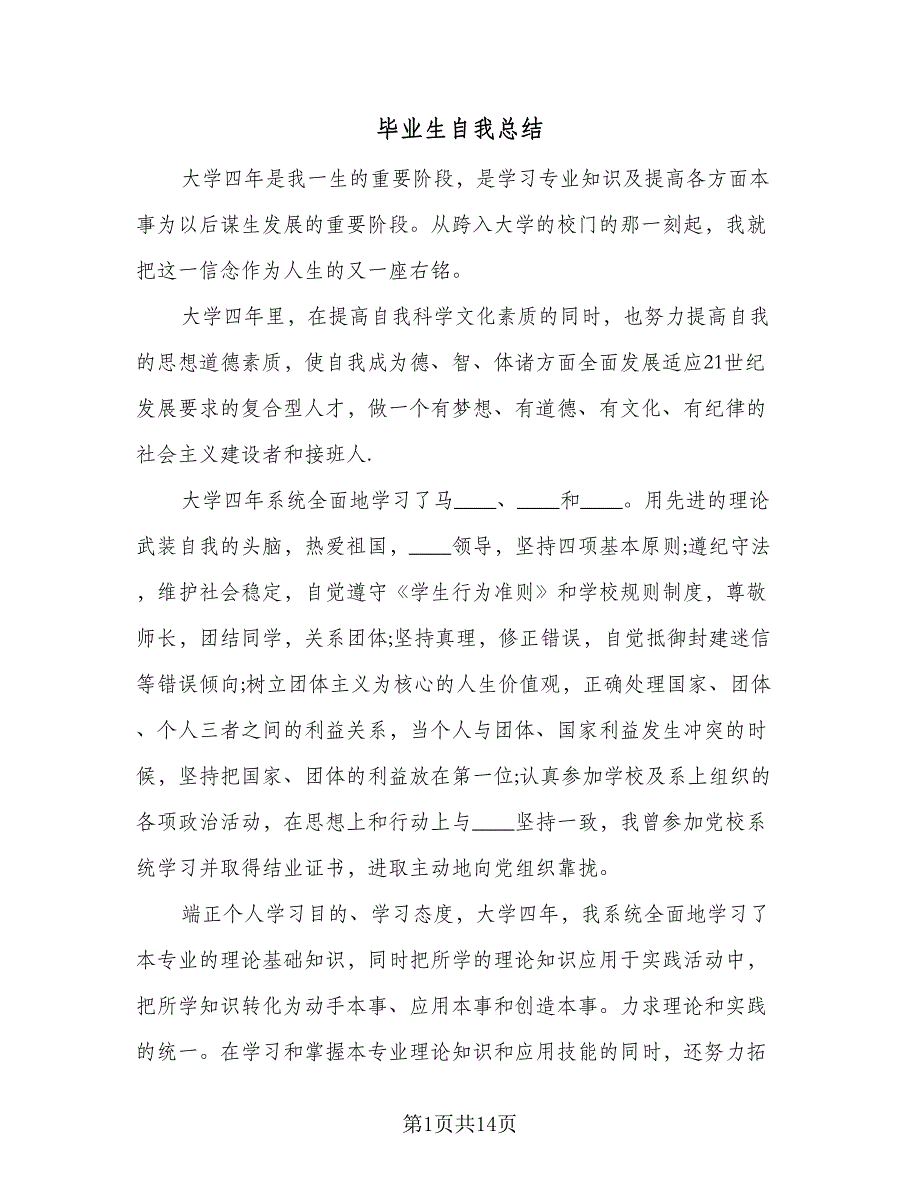 毕业生自我总结
大学四年是我一生的重要阶段，是学习专业知识及提高各方面本
事为以后谋生发展的重要阶段。从跨入大学的校门的那一刻起，我就
把这一信念作为人生的又一座右铭。
大学四年里，在提高自我科学文化素质的同时，也努力提高自我
的思想道德素质，使自我成为德、智、体诸方面全面发展适应21世纪
发展要求的复合型人才，做一个有梦想、有道德、有文化、有纪律的
社会主义建设者和接班人.
大学四年系统全面地学习了马____、____和____。用先进的理论
武装自我的头脑，热爱祖国，____领导，坚持四项基本原则;遵纪守法
，维护社会稳定，自觉遵守《学生行为准则》和学校规则制度，尊敬
师长，团结同学，关系团体;坚持真理，修正错误，自觉抵御封建迷信
等错误倾向;树立团体主义为核心的人生价值观，正确处理国家、团体
、个人三者之间的利益关系，当个人与团体、国家利益发生冲突的时
候，坚持把国家、团体的利益放在第一位;认真参加学校及系上组织的
各项政治活动，在思想上和行动上与____坚持一致，我曾参加党校系
统学习并取得结业证书，进取主动地向党组织靠拢。
端正个人学习目的、学习态度，大学四年，我系统全面地学习了
本专业的理论基础知识，同时把所学的理论知识应用于实践活动中，
把所学知识转化为动手本事、应用本事和创造本事。力求理论和实践
的统一。在学习和掌握本专业理论知识和应用技能的同时，还努力拓
第1页共14页